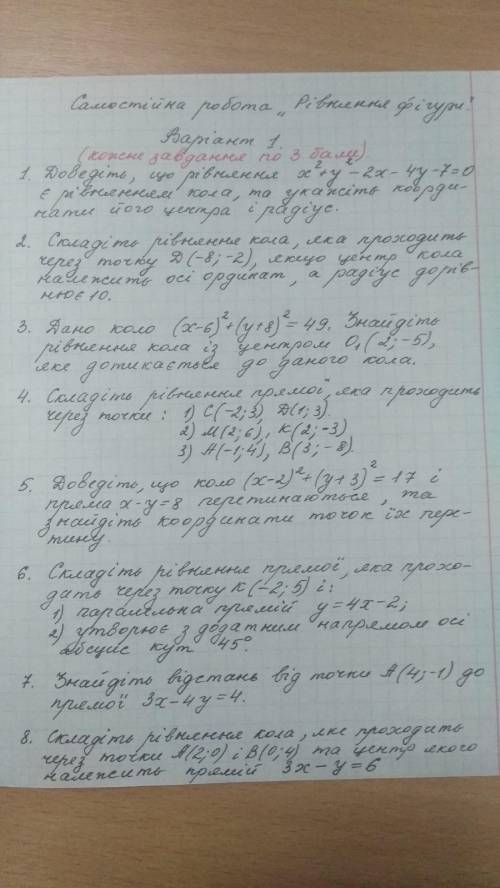 Самостійна робота „Рівняння фігури".
Варіант 1
(кожне завдання по 3 бали)
1. Доведіть, що рівняння x²+y-2x-4y-7=0
є рівнянням кола, та укажіть коорди-
нати його центра і радіус.
2. Складіть рівняння кола, яка проходить
через точку D(-8;-2), якщо центр кола
належить осі ординат, а радіус дорів-
нює 10.
3. Дано коло (x-6)²+(y+8)²=49. Знайдіть
рівняння кола із центром O₁(2;-5),
яке дотикається до даного кола.
4. Складіть рівняння прямої, яка проходить
через точки: 1) C(-2;3), D(1;3).
2) M(2;6), K(2;-3)
3) A(-1;4), B(3;-8).
5. Доведіть, що коло (x-2)²+(y+3)²=17 і
пряма x-y=8 перетинаються, та
знайдіть координати точок їх пере-
тину.
6. Складіть рівняння прямої, яка прохо-
дать через точку K(-2;5) і:
1) паралельна прямій y=4x-2;
2) утворює з додатним напрямом осі
абсцис кут 45°.
7. Знайдіть відстань від точки A(4;-1) до
прямої 3x-4y=4.
8. Складіть рівняння кола, яке проходить
через точки A(2;0) і B(0;4) та центр якого
належить прямій 3x-y=6